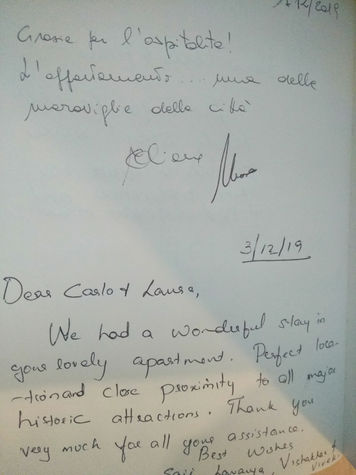 12/2019
Grazie per l'ospitalità!
L'appartamento... una delle
meraviglie della città
3/12/19
Dear Carlo & Laura,
We had a wonderful stay in
your lovely apartment. Perfect loca-
-tion and close proximity to all major
historic attractions. Thank you
very much for all your assistance.
Best Wishes